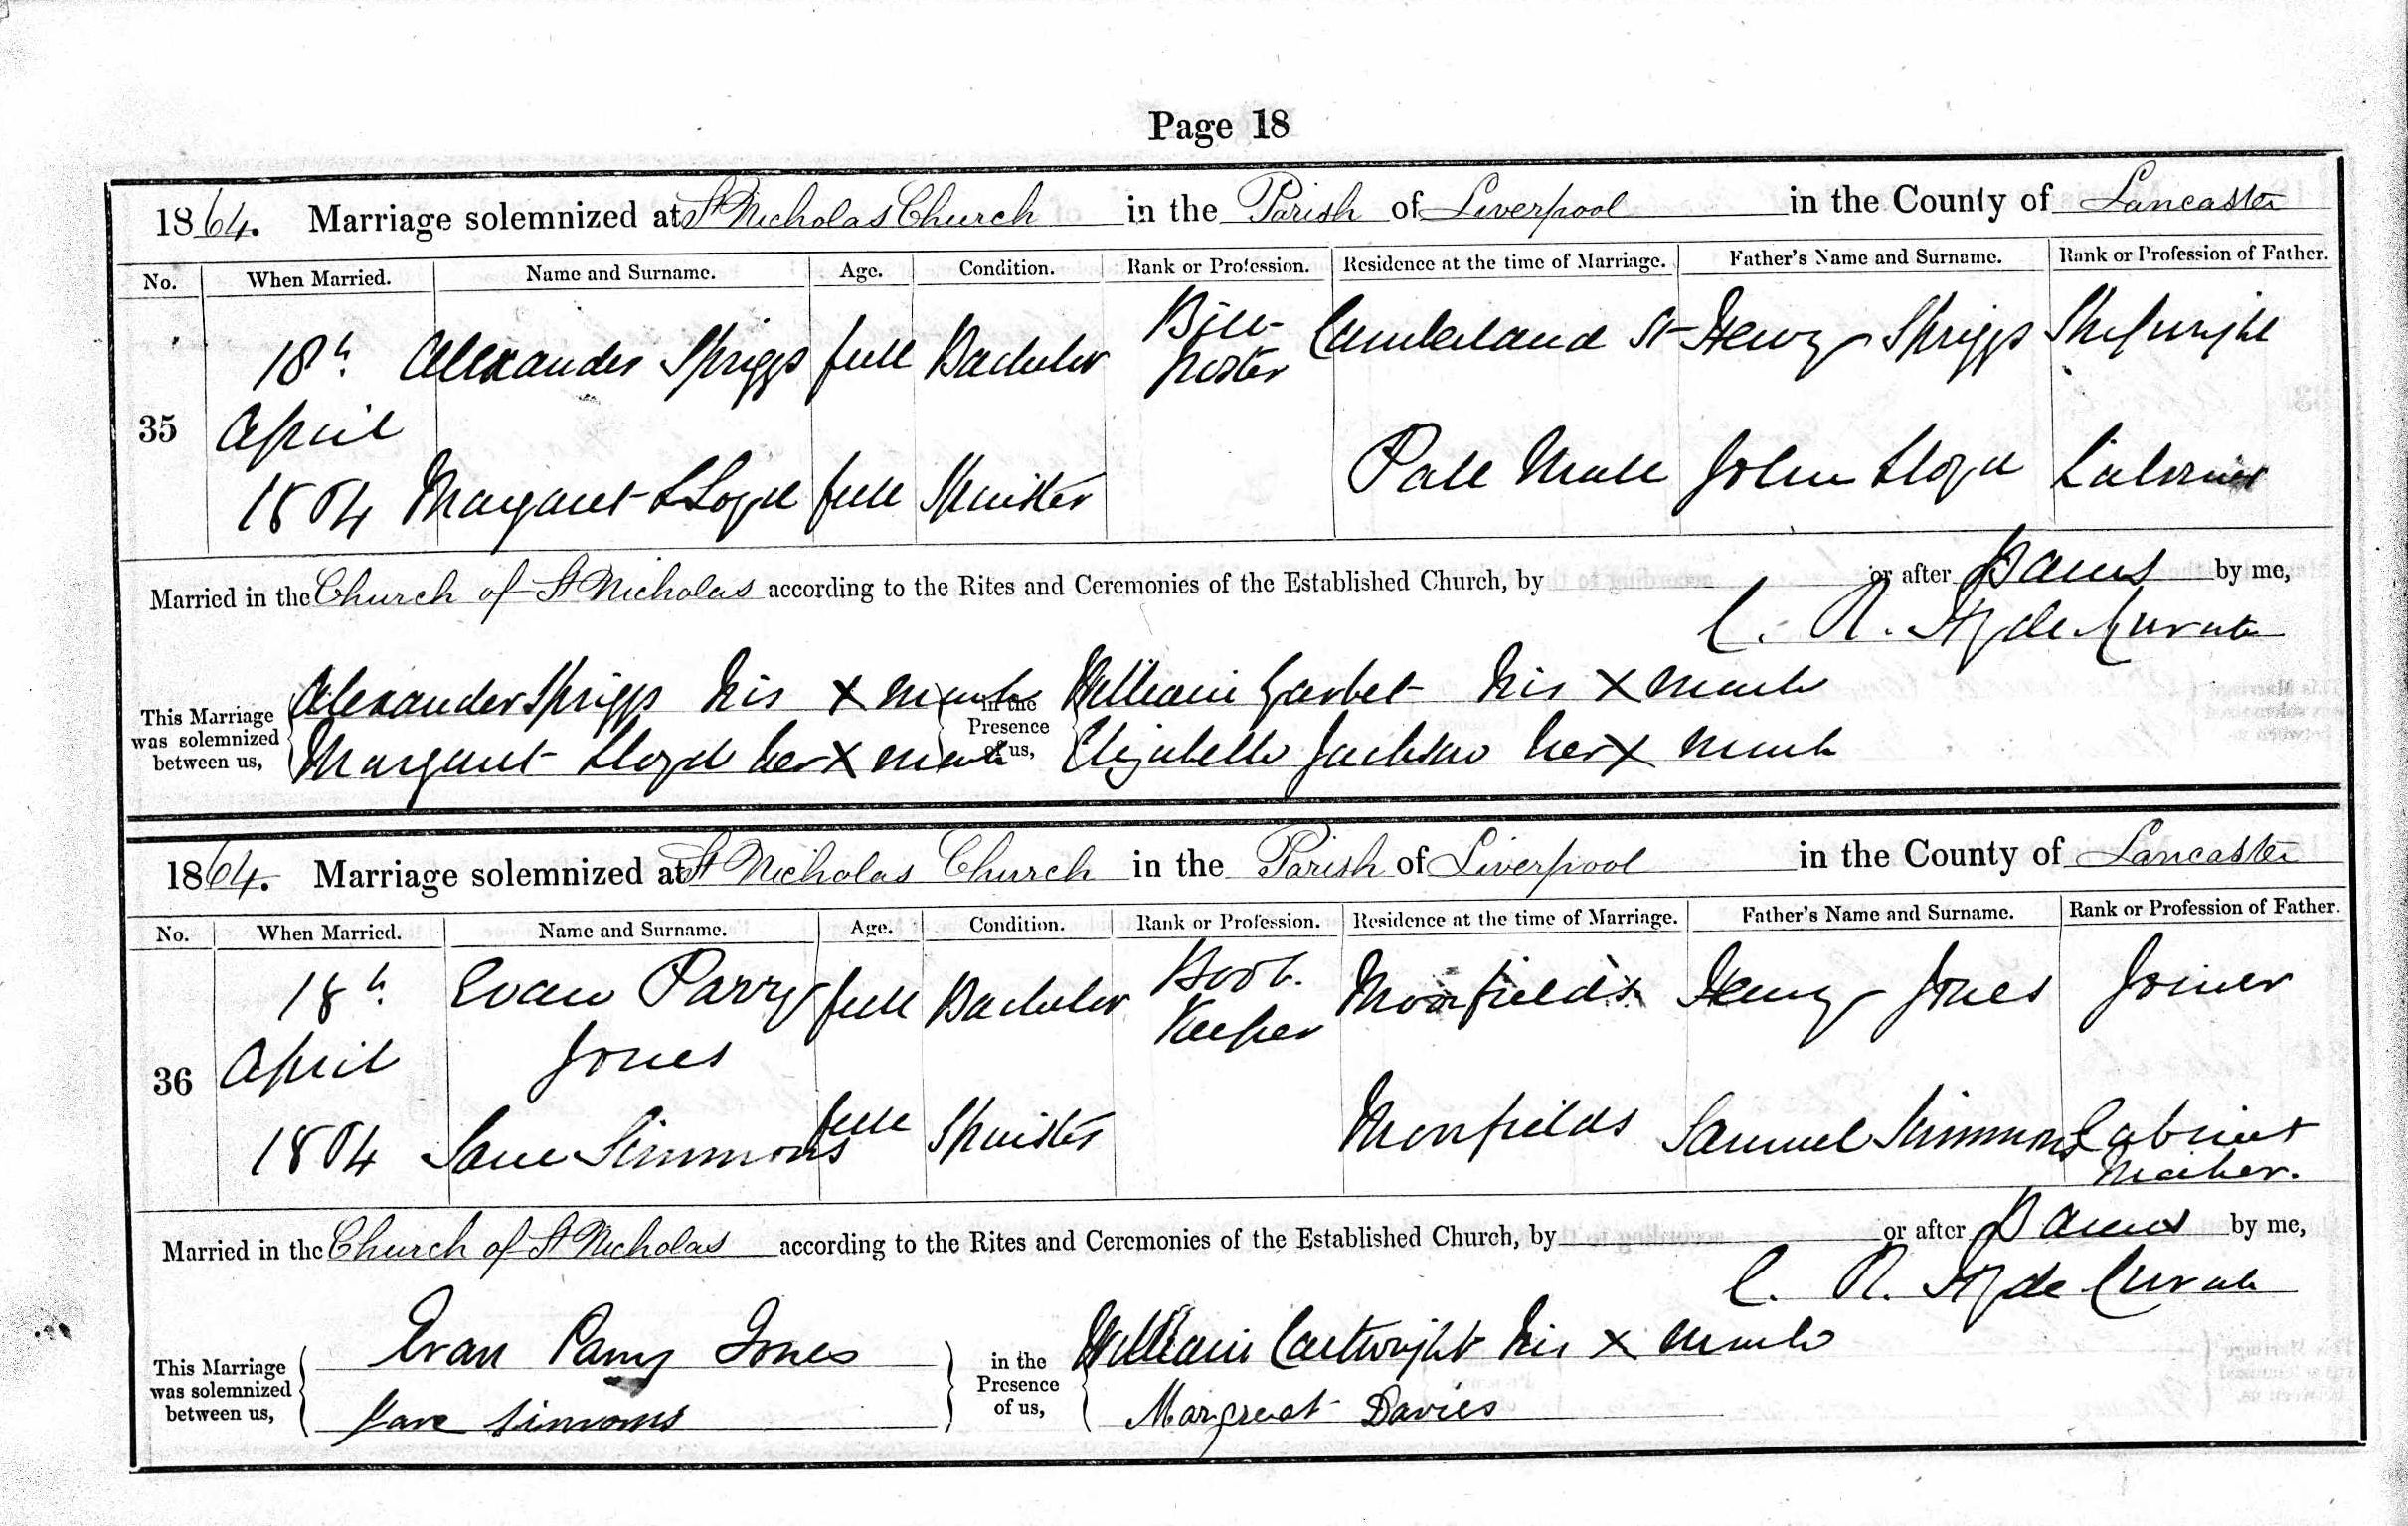 Page 18
1864. Marriage solemnized at St Nicholas Church in the Parish of Liverpool in the County of Lancaster
No. When Married. Name and Surname. Age. Condition. Rank or Profession. Residence at the time of Marriage. Father's Name and Surname. Rank or Profession of Father.
18th Alexander Spriggs full Bachelor Bill- Poster Cumberland St Henry Spriggs Shipwright
35 April
1864 Margaret Lloyd full Spinster Pall Mall John Lloyd Labourer
Married in the Church of St Nicholas according to the Rites and Ceremonies of the Established Church, by or after Banns by me,
C. R. Hyde Curate
This Marriage was solemnized between us, Alexander Spriggs his x mark in the Presence of us, William Garbet his x mark
Margaret Lloyd her x mark Elizabeth Jackson her x mark
1864. Marriage solemnized at St Nicholas Church in the Parish of Liverpool in the County of Lancaster
No. When Married. Name and Surname. Age. Condition. Rank or Profession. Residence at the time of Marriage. Father's Name and Surname. Rank or Profession of Father.
18th Evan Parry full Bachelor Book Keeper Moorfields Henry Jones Joiner
36 April Jones
1864 Jane Simmons full Spinster Moorfields Samuel Simmons Cabinet Maker.
Married in the Church of St Nicholas according to the Rites and Ceremonies of the Established Church, by or after Banns by me,
C. R. Hyde Curate
This Marriage was solemnized between us, Evan Parry Jones in the Presence of us, William Cartwright his x mark
Jane Simmons Margreat Davies